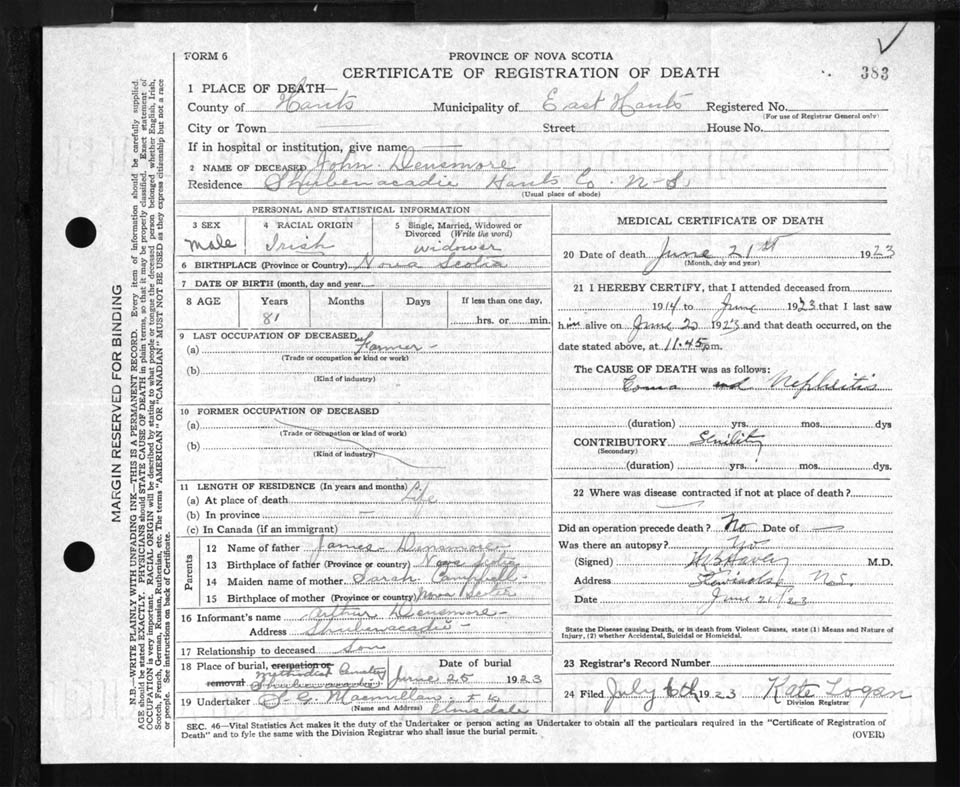 FORM 6
PROVINCE OF NOVA SCOTIA
CERTIFICATE OF REGISTRATION OF DEATH
383
1 PLACE OF DEATH—
County of Hants Municipality of East Hants Registered No.
(For use of Registrar General only)
City or Town Street House No.
If in hospital or institution, give name
2 NAME OF DECEASED John Densmore
Residence Shubenacadie Hants Co. N-S.
(Usual place of abode)
PERSONAL AND STATISTICAL INFORMATION
3 SEX 4 RACIAL ORIGIN 5 Single, Married, Widowed or Divorced (Write the word)
male Irish widower
6 BIRTHPLACE (Province or Country) Nova Scotia
7 DATE OF BIRTH (month, day and year)
8 AGE Years Months Days If less than one day,
81 hrs. or min.
9 LAST OCCUPATION OF DECEASED
(a) Farmer-
(Trade or occupation or kind of work)
(b)
(Kind of industry)
10 FORMER OCCUPATION OF DECEASED
(a)
(Trade or occupation or kind of work)
(b)
(Kind of industry)
11 LENGTH OF RESIDENCE (In years and months)
(a) At place of death Life
(b) In province —
(c) In Canada (if an immigrant)
Parents
12 Name of father James Densmore
13 Birthplace of father (Province or country) Nova Scotia
14 Maiden name of mother Sarah Campbell-
15 Birthplace of mother (Province or country) Nova Scotia
16 Informant's name Arthur Densmore-
Address Shubenacadie-
17 Relationship to deceased Son
18 Place of burial, cremation or removal Date of burial
Methodist Cemetery Shubenacadie June 25 1923
19 Undertaker Macmillan
(Name and Address) Elmsdale
MEDICAL CERTIFICATE OF DEATH
20 Date of death June 21st 1923
(Month, day and year)
21 I HEREBY CERTIFY, that I attended deceased from
1914 to June 1923 that I last saw
him alive on June 20 1923 and that death occurred, on the
date stated above, at 11.45 pm.
The CAUSE OF DEATH was as follows:
Coma and Nephritis
(duration) yrs. mos. dys
CONTRIBUTORY Senility
(Secondary)
(duration) yrs. mos. dys.
22 Where was disease contracted if not at place of death?
Did an operation precede death? No Date of —
Was there an autopsy? No
(Signed) M.D.
Address N.S.
Date June 21/23
State the Disease causing Death, or in death from Violent Causes, state (1) Means and Nature of
Injury, (2) whether Accidental, Suicidal or Homicidal.
23 Registrar's Record Number
24 Filed July 6th 1923 Kate Logan
Division Registrar
SEC. 46—Vital Statistics Act makes it the duty of the Undertaker or person acting as Undertaker to obtain all the particulars required in the "Certificate of Registration of
Death" and to fyle the same with the Division Registrar who shall issue the burial permit.
(OVER)
MARGIN RESERVED FOR BINDING
N.B.—WRITE PLAINLY WITH UNFADING INK—THIS IS A PERMANENT RECORD. Every item of information should be carefully supplied.
AGE should be stated EXACTLY. PHYSICIANS should STATE CAUSE OF DEATH in plain terms, so that it may be properly classified. Exact statement of
OCCUPATION is very important. RACIAL ORIGIN will be described by stating to what people or tongue the deceased person belonged whether English, Irish,
Scotch, French, German, Russian, Ruthenian, etc. The terms "AMERICAN" OR "CANADIAN" MUST NOT BE USED as they express citizenship but not a race
or people. See instructions on back of Certificate.